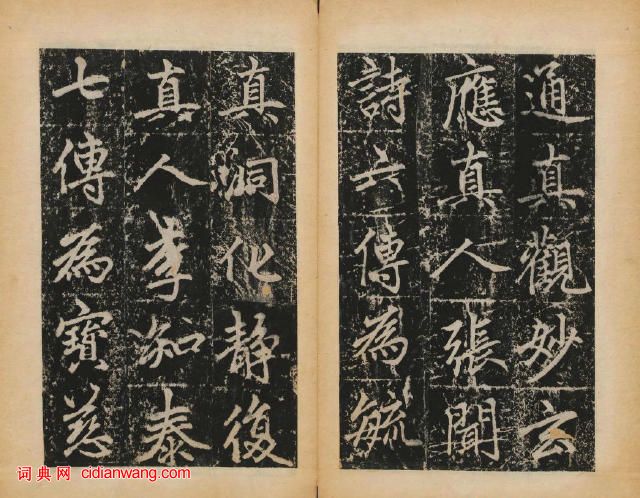 通真觀妙玄
應真人張聞
詩六傳為毓
真洞化静復
真人李知泰
七傳為寶慈
词典网 cidianwang.com